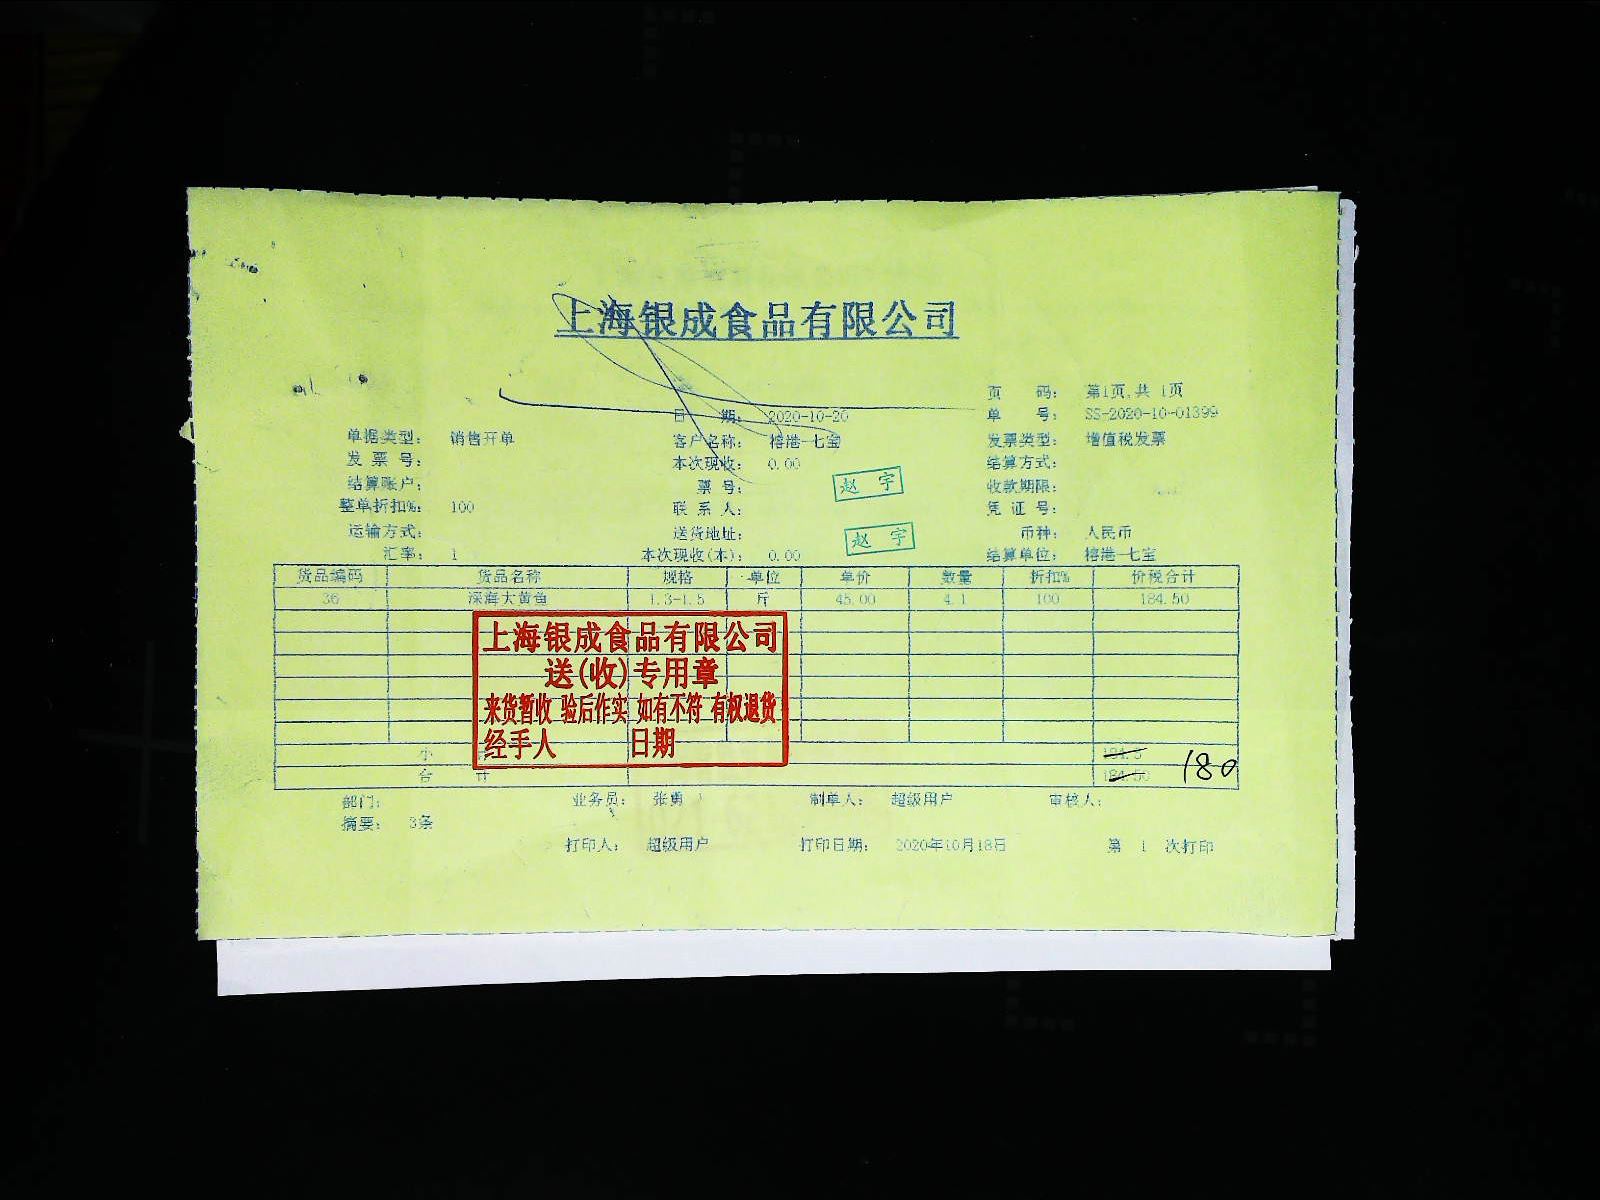 上海银成食品有限公司
页 码： 第1页,共 1页
日 期： 2020-10-20 单 号： SS-2020-10-01399
单据类型： 销售开单 客户名称： 榕港-七宝 发票类型： 增值税发票
发 票 号： 本次现收： 0.00 结算方式：
结算账户： 票 号： 赵 宇 收款期限：
整单折扣%： 100 联 系 人： 凭 证 号：
运输方式： 送货地址： 赵 宇 币种： 人民币
汇率： 1 本次现收(本)： 0.00 结算单位： 榕港-七宝
货品编码 货品名称 规格 单位 单价 数量 折扣% 价税合计
36 深海大黄鱼 1.3-1.5 斤 45.00 4.1 100 184.50
上海银成食品有限公司
送(收)专用章
来货暂收 验后作实 如有不符 有权退货
经手人 日期
小 184.5
合 计 184.50 180
部门： 业务员： 张勇 制单人： 超级用户 审核人：
摘要： 3条
打印人： 超级用户 打印日期： 2020年10月18日 第 1 次打印